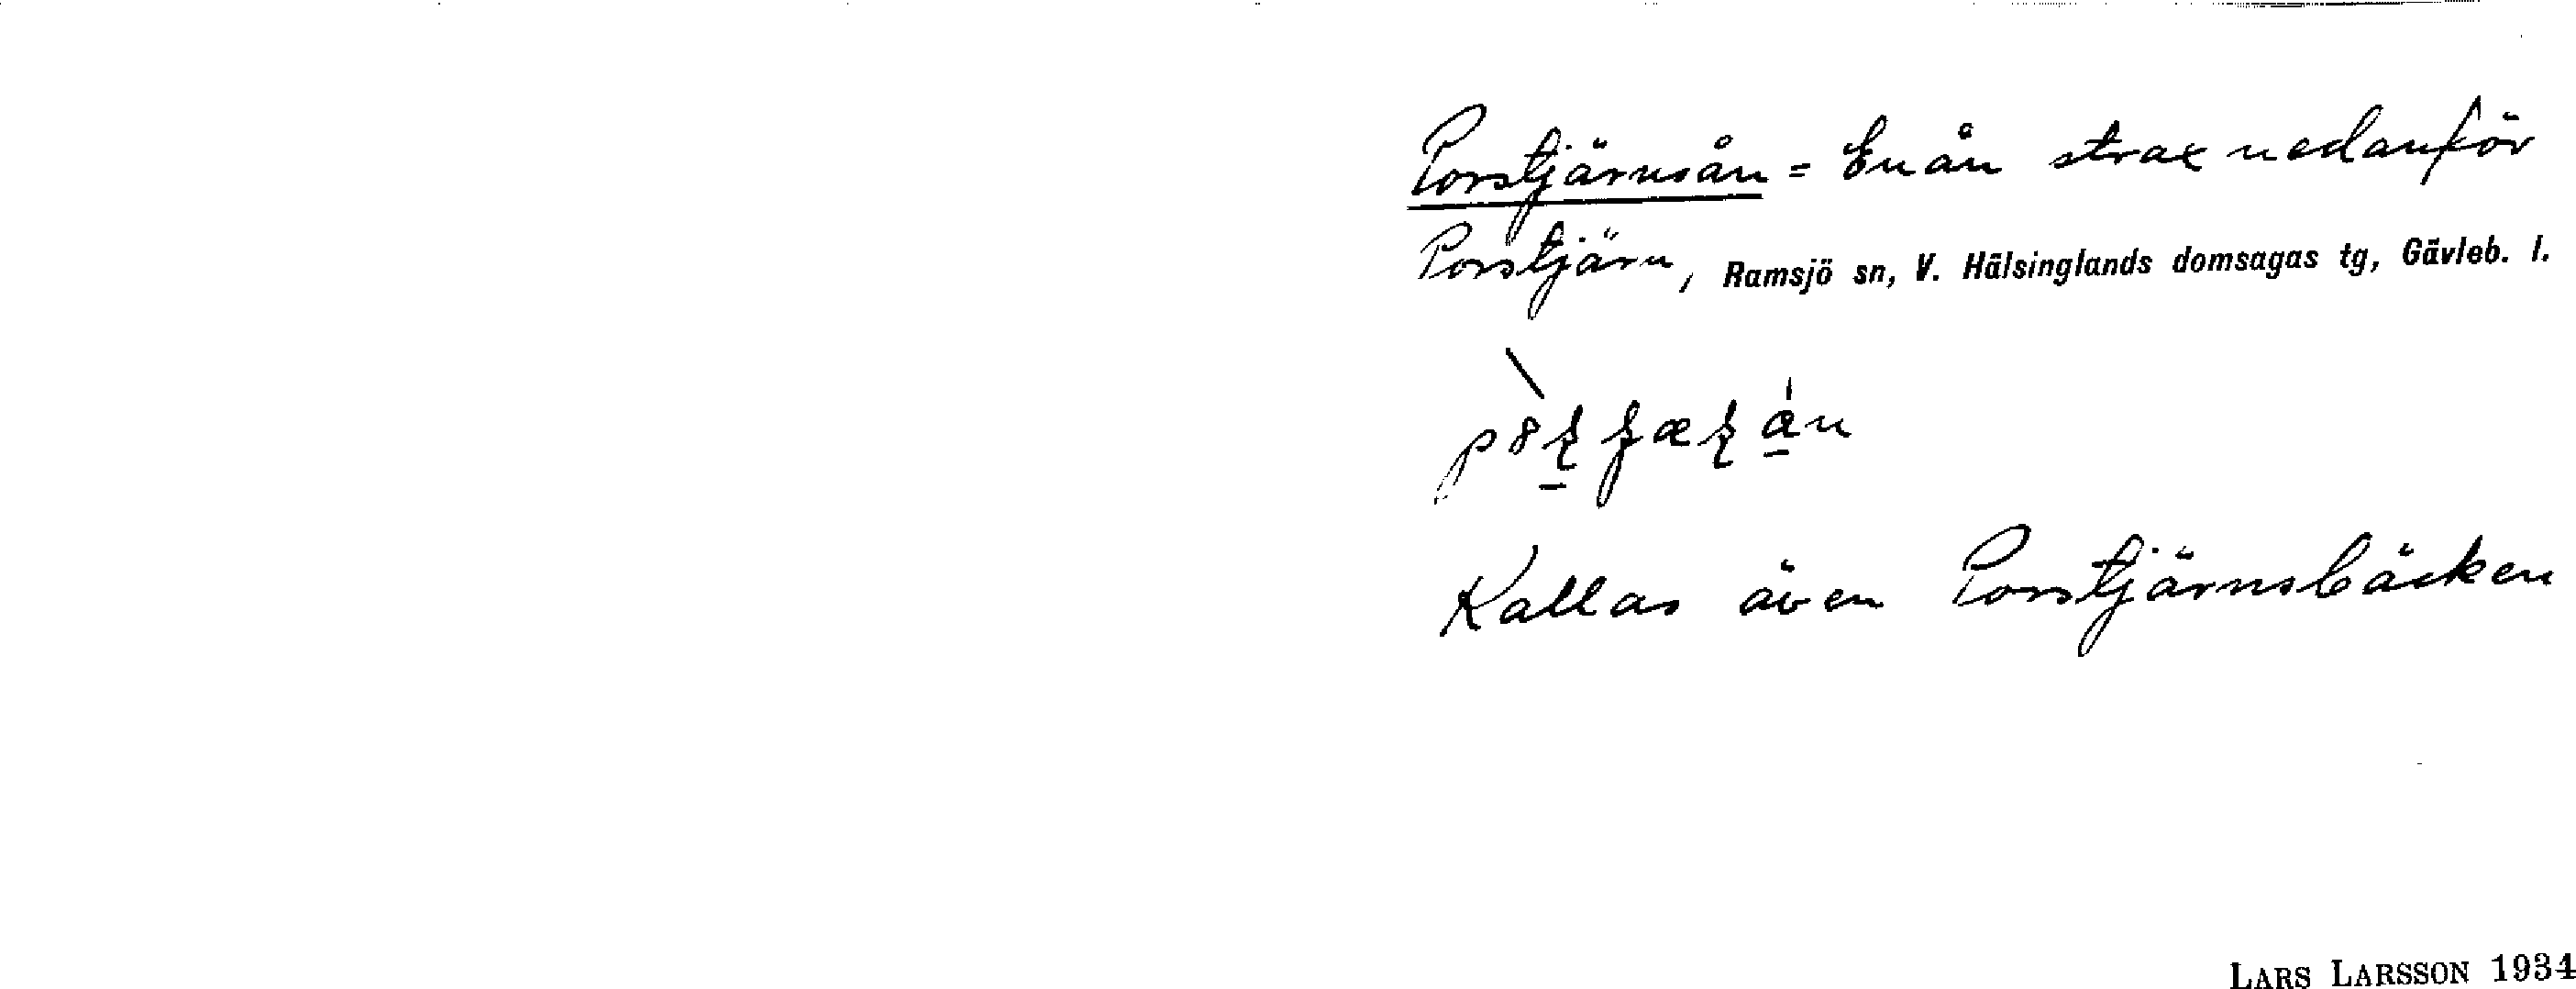 Porstjärnsån = Enån strax nedanför
Porstjärn, Ramsjö sn, V. Hälsinglands domsagas tg, Gävleb. l.
Kallas även Porstjärnsbäcken
LARS LARSSON 1934